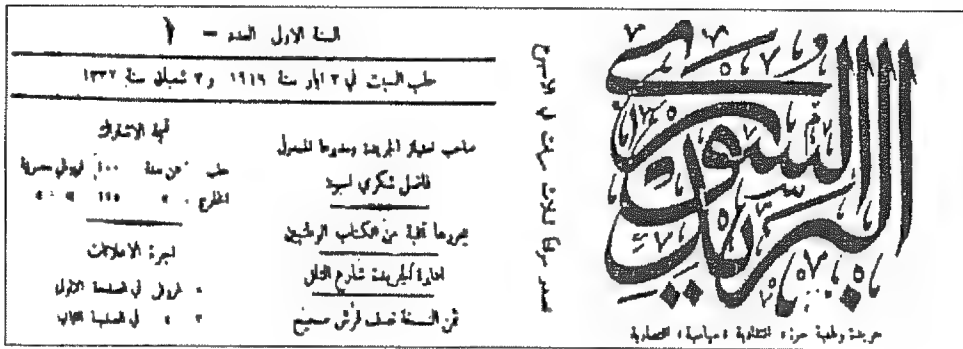 البريد السوري
جريدة وطنية حرة انتقادية سياسية اقتصادية
تصدر موقتاً ثلاث مرات في الاسبوع
السنة الاولى العدد – ١
حلب السبت في ٣ ايار سنة ١٩١٩ و ٣ شعبان سنة ١٣٣٧
صاحب امتياز الجريدة ومديرها المسؤول
فاضل شكري
يحررها نخبة من الكتاب الوطنيين
ادارة الجريدة شارع التلل
ثمن النسخة نصف قرش صحيح
قيمة الاشتراك
حلب عن سنة ١٠٠ مصرية
الخارج
اجرة الاعلانات
غروش في الصفحة الاولى
٣ في الصفحة